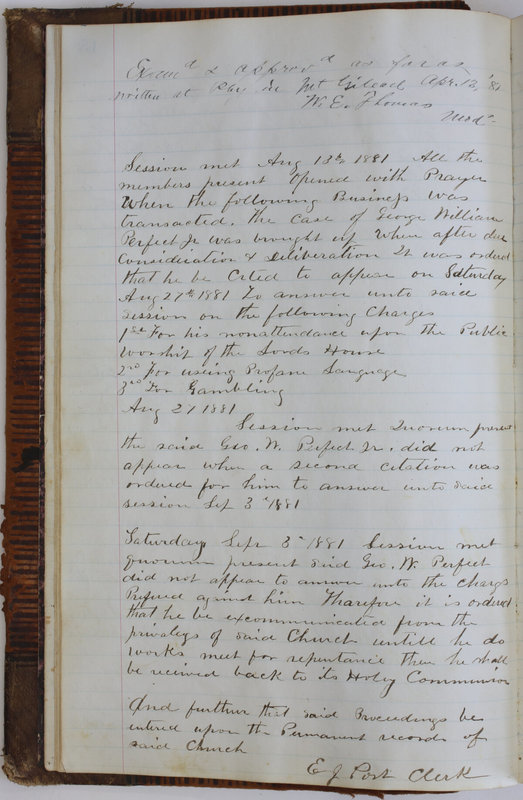 Exam'd & approv'd as far as
written at Pby in Mt Gilead Apr. 13, '81
W. E. Thomas
Mod-
Session met Aug 13th 1881 All the
members present Opened with Prayer
When the following Business was
transacted. The case of George William
Perfect Jr was brought up When after due
Consideration & Deliberation It was ordered
that he be Cited to appear on Saturday
Aug 27th 1881 To answer unto said
session on the following Charges
1st For his nonattendance upon the Public
worship of the Lords House
2nd For using Profane Language
3rd For Gambling
Aug 27 1881
Session met Quorum present
the said Geo. W. Perfect Jr. did not
appear when a second citation was
ordered for him to answer unto said
session Sep 3" 1881
Saturday Sepr 3" 1881 Session met
quorum present said Geo. W. Perfect
did not appear to answer unto the Chargs
Prefured against him Tharefore it is ordered
that he be excommunicated from the
privalegs of said Church untill he do
works meet for repentance then he shall
be received back to its Holy Communion
And further that said Proceedings be
entered upon the Permanent records of
said Church
E J Post Clerk